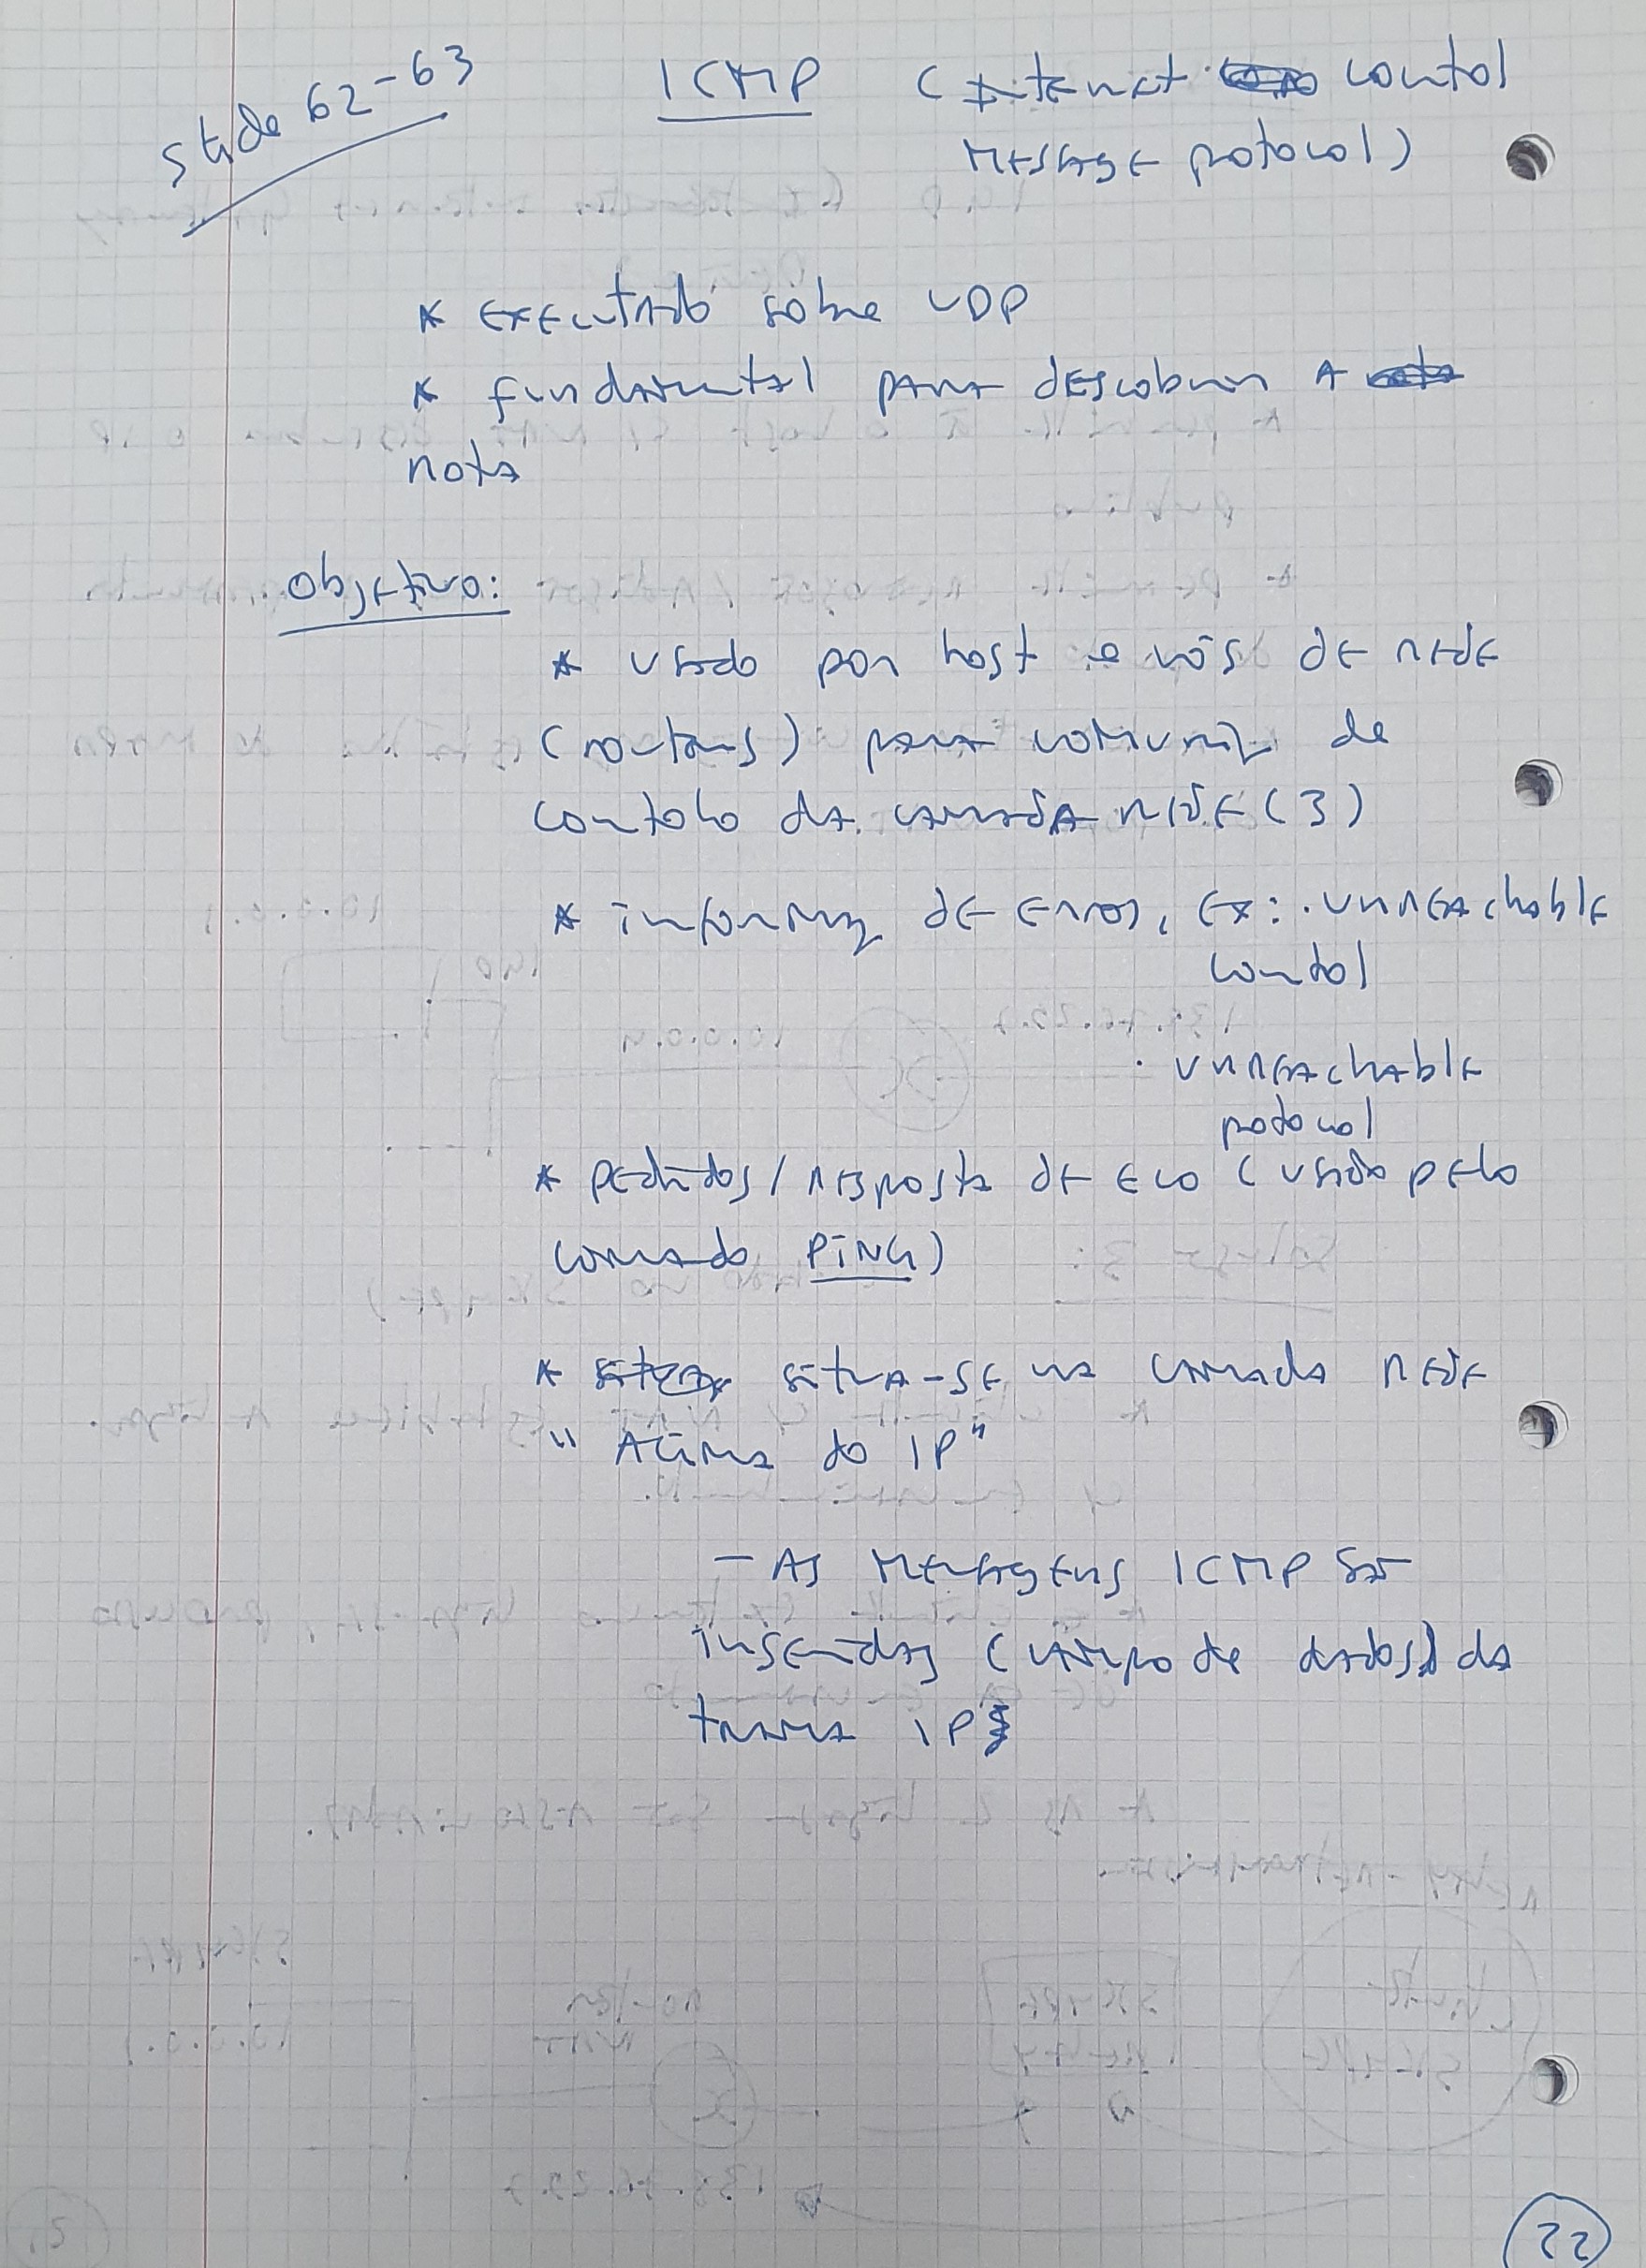 slide 62-63
ICMP (Internet control
Message protocol)
* executado sobre UDP
* fundamental para descobrir a
rota
Objetivo:
* usado por host e nós de rede
(routers) para comunic de
controlo da camada rede (3)
* informaç de erros, ex: . unreachable
control
. unreachable
protocol
* pedidos/resposta de eco (usado pelo
comado PING)
* situa-se na camada rede
" Acima do IP"
- As mensagens ICMP são
inseridas (campo de dados) da
trama IP
22